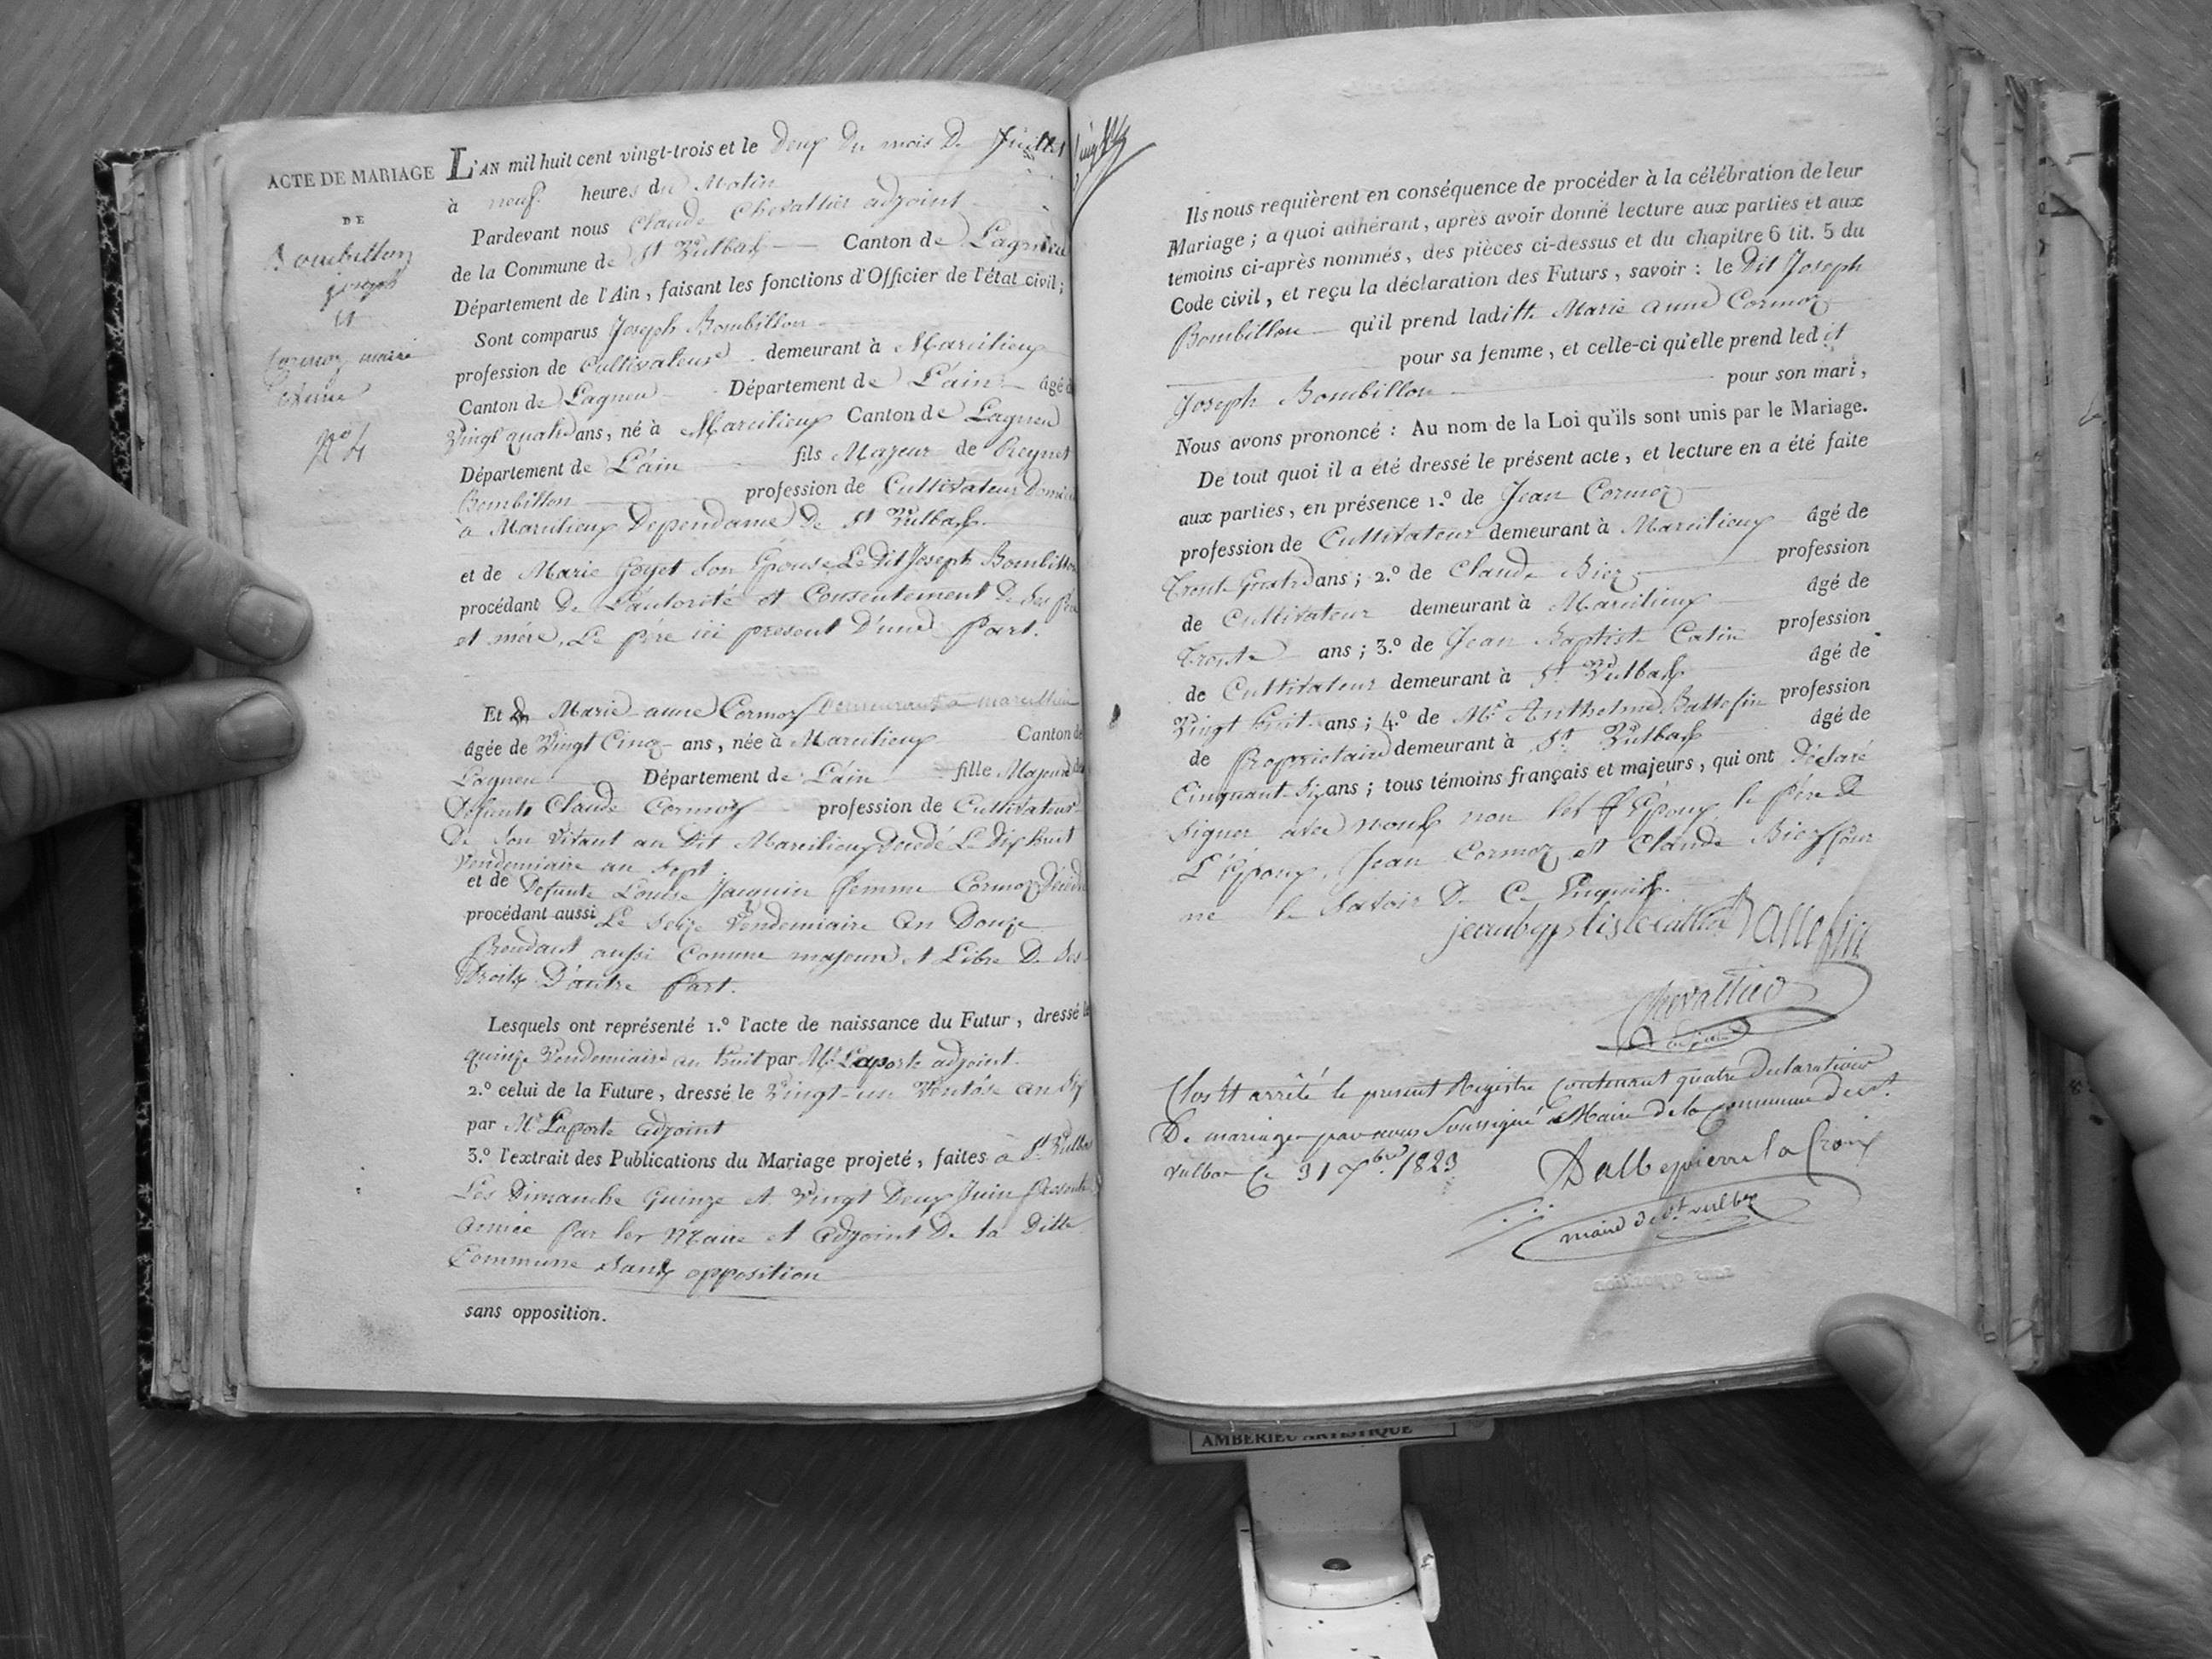 ACTE DE MARIAGE
DE
Bombillon
joseph
et
Cormoz marie
Nº 4
L'AN mil huit cent vingt-trois et le Deux Du mois De Juillet
à neuf heures du Matin
Pardevant nous Claude Chevallier adjoint
de la Commune de St Vulbas Canton de Lagnieu
Département de l'Ain, faisant les fonctions d'Officier de l'état civil;
Sont comparus Joseph Bombillon
profession de Cultivateur demeurant à Marcilieux
Canton de Lagneu Département de L'ain âgé d
Vingt quatre ans, né à Marcilieux Canton de Lagneu
Département de L'ain fils Majeur de Reynet
Bombillon profession de Cultivateur
à Marcilieux Dependance de St Vulbas
et de Marie Goyet Son Epouse Le Dit Joseph Bombillon
procédant De L'autorité et Consentement De Ses Pere
et mére, Le Pére ici present D'une Part.
Et Marie anne Cormoz demeurant a marcillieu
âgée de Vingt Cinq ans, née à Marcilieux Canton de
Lagneu Département de L'ain fille Majeure de
Défunt Claude Cormoz profession de Cultivateur
De Son Vivant au Dit Marcilieux Décédé Le Dix huit
Vendemiaire an Sept
et de Defunte Louise Jacquin femme Cormoz Décédé
procédant aussi Le Seize Vendemiaire an Douze
Procedant aussi Comme majeure et Libre De Ses
Droits D'autre Part.
Lesquels ont représenté 1.º l'acte de naissance du Futur, dressé le
quinze Vendemiaire an huit par Mr Laporte adjoint
2.º celui de la Future, dressé le Vingt-un Ventôse an Six
par Mr Laporte adjoint
3.º l'extrait des Publications du Mariage projeté, faites à St Vulbas
Les Dimanche Quinze et Vingt Deux Juin Presente
année Par les Maire et adjoint De la Ditte
Commune Sans opposition
sans opposition.
Ils nous requièrent en conséquence de procéder à la célébration de leur
Mariage; a quoi adhérant, après avoir donné lecture aux parties et aux
témoins ci-après nommés, des pièces ci-dessus et du chapitre 6 tit. 5 du
Code civil, et reçu la déclaration des Futurs, savoir: le Dit Joseph
Bombillon qu'il prend laditte Marie Anne Cormoz
pour sa femme, et celle-ci qu'elle prend ledit
Joseph Bombillon pour son mari,
Nous avons prononcé: Au nom de la Loi qu'ils sont unis par le Mariage.
De tout quoi il a été dressé le présent acte, et lecture en a été faite
aux parties, en présence 1.º de Jean Cormoz
profession de Cultivateur demeurant à Marcilieux âgé de
Trente Quatre ans; 2.º de Claude Biez profession
de Cultivateur demeurant à Marcilieux âgé de
Trente ans; 3.º de Jean Baptiste Catin profession
de Cultivateur demeurant à St Vulbas âgé de
Vingt huit ans; 4.º de Mr Anthelme Battefin profession
de Proprietaire demeurant à St Vulbas âgé de
Cinquante Six ans; tous témoins français et majeurs, qui ont Déclaré
Signer avec nous non les Epoux le Pére De
L'Epoux, Jean Cormoz et Claude Biez Pour
ne le Savoir De Ce Enquis.
Chevallier
adjoint
Clos et arrêté le present Registre Contenant quatre Declarations
De mariage par nous Soussigné Maire de la Commune de St
Vulbas Ce 31 Xbre 1823
Dallepierre la Croix
maire de st vulbas
AMBERIEU ARTISTIQUE